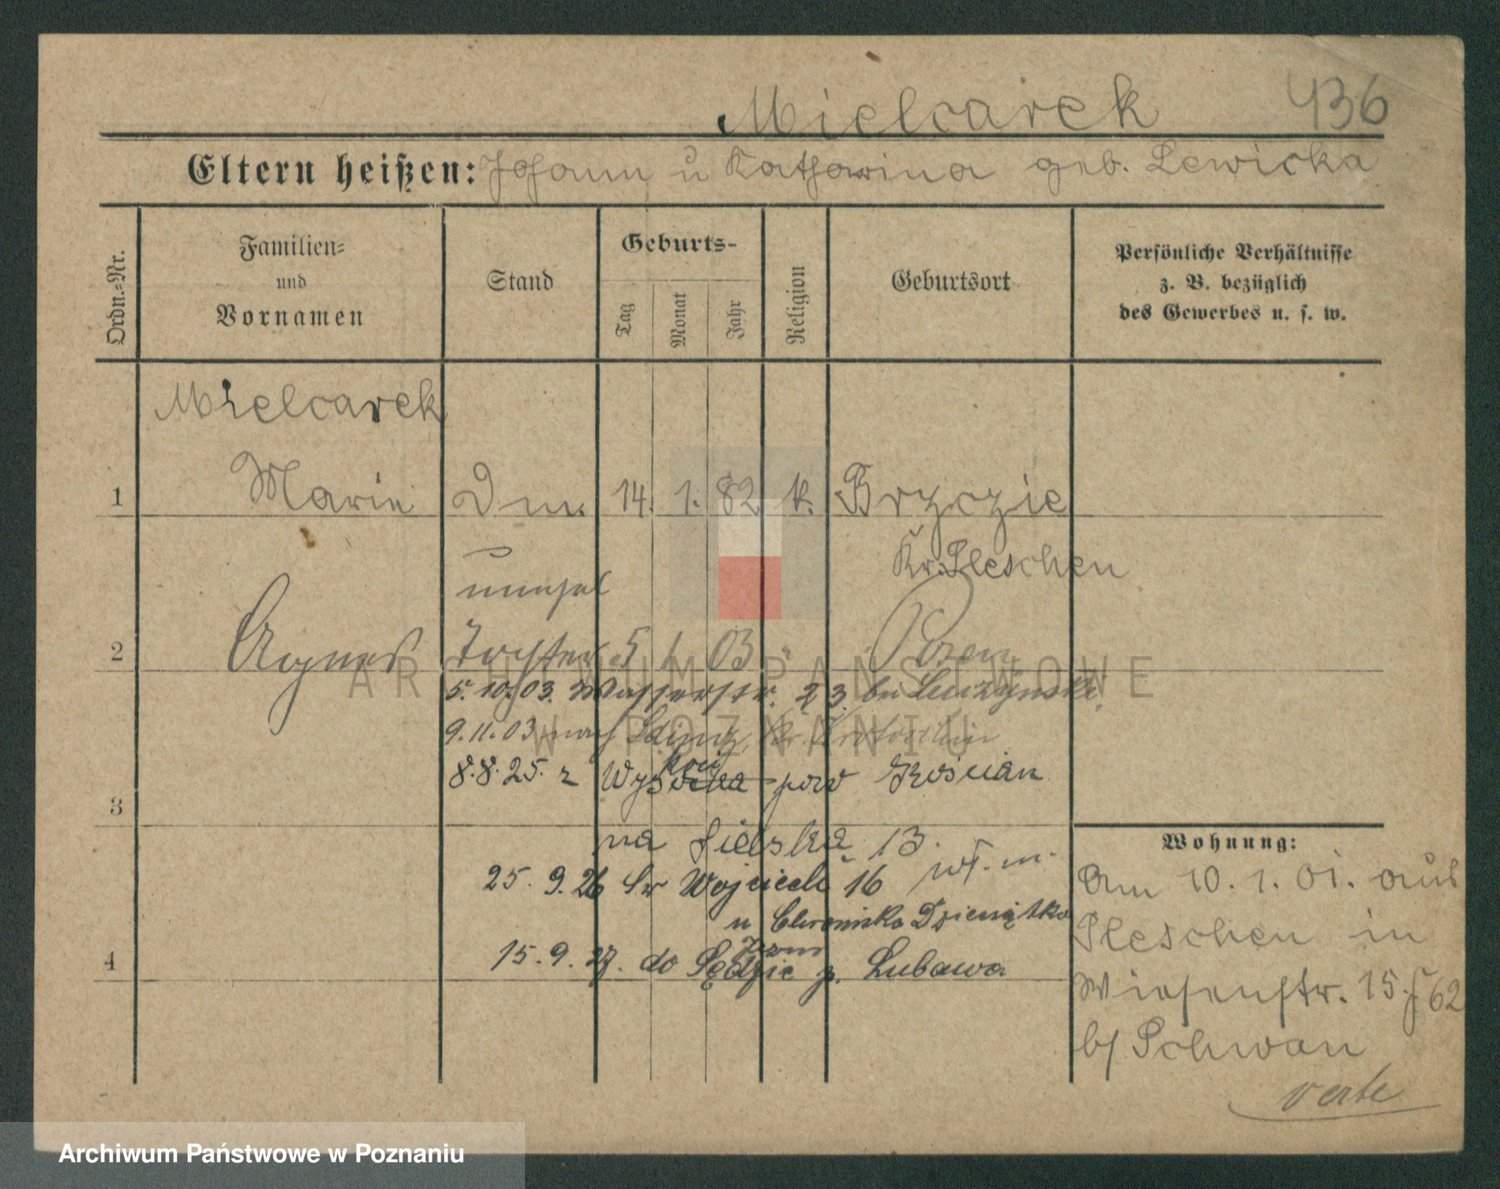 Mielcarek 436
Eltern heißen: Johann u Katharina geb. Lewicka
Ordn.-Nr.
Familien- und Vornamen
Stand
Geburts-
Tag
Monat
Jahr
Religion
Geburtsort
Persönliche Verhältnisse
z. B. bezüglich
des Gewerbes u. s. w.
Mielcarek
1 Marie 14. 1. 82 k. Brzezie
Kr. Pleschen
unehel
2 Agnes Tochter 5 1 03 " Posen
5. 10. 03. Wasserstr. 23. bei
9. 11. 03 nach
8.8.25. z pow Kościan
3
na 13.
25. 9. 26 Św Wojciech 16
u Dzieciątko
4 15. 9. 27. do p. Lubawa
Wohnung:
Am 10. 1. 01. aus
Pleschen in
Wiesenstr. 15. 62
b/ Schwan
verte
ARCHIWUM PAŃSTWOWE
W POZNANIU
Archiwum Państwowe w Poznaniu